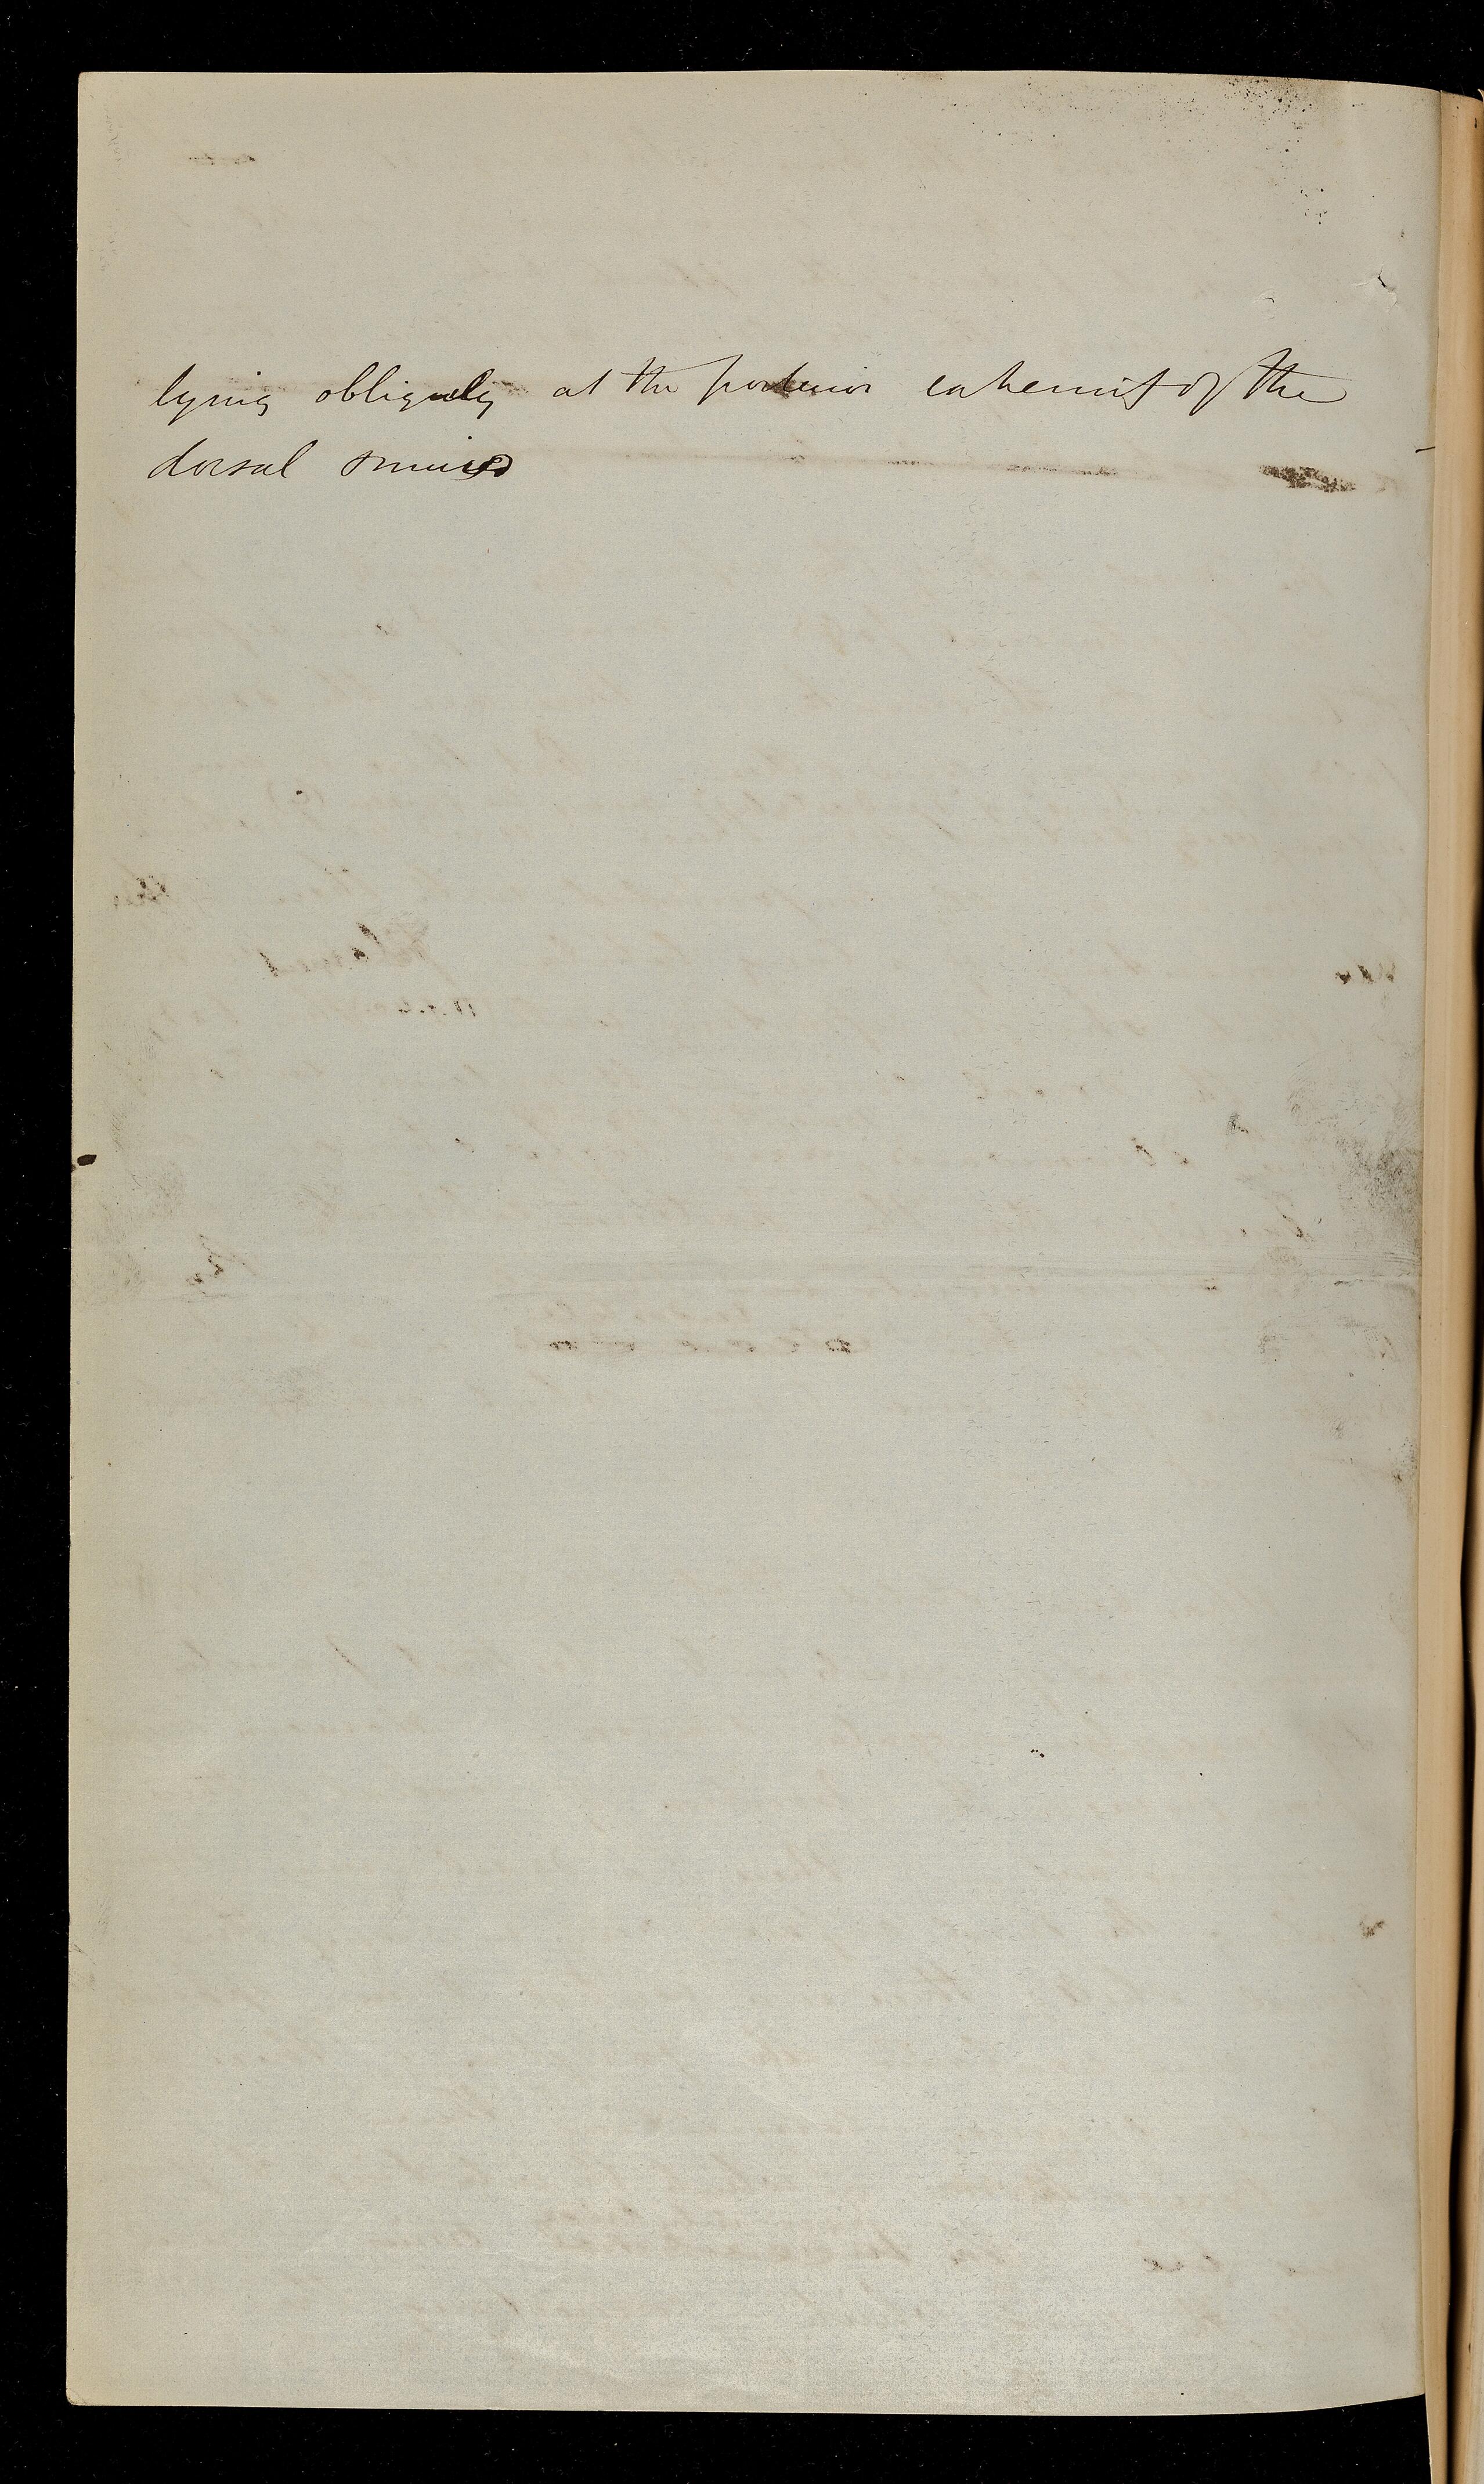 lying obliquely at the posterior extremity of the
dorsal sinus